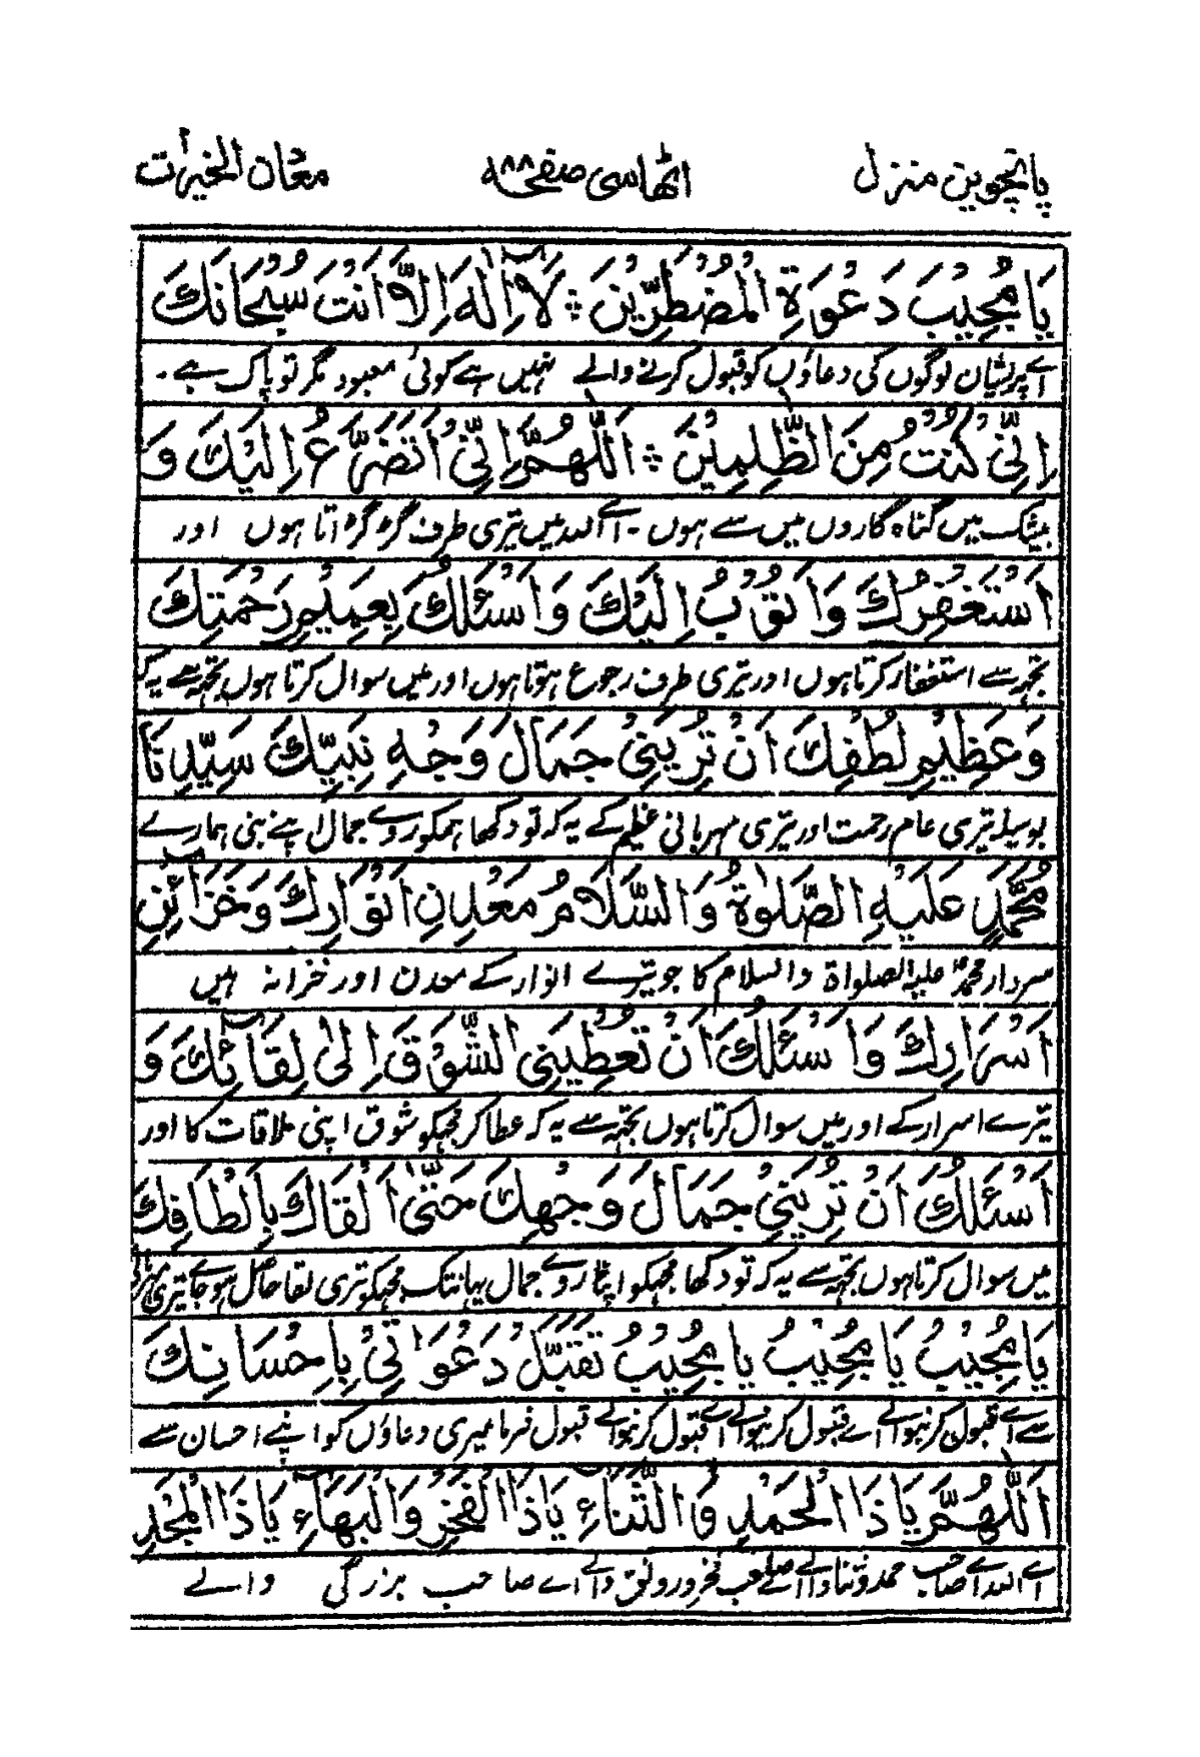 پانچویں منزل اٹھاسی صفحہ ۸۸ معدن الخیرات
يَا مُجِيْبَ دَعْوَةِ الْمُضْطَرِّيْنَ ۞ لَآ اِلٰهَ اِلَّآ اَنْتَ سُبْحَانَكَ
اے پریشان لوگوں کی دعاؤں کو قبول کرنے والے نہیں ہے کوئی معبود مگر تو پاک ہے۔
اِنِّيْ كُنْتُ مِنَ الظّٰلِمِيْنَ ۞ اَللّٰهُمَّ اِنِّيْ اَتَضَرَّعُ اِلَيْكَ وَ
بیشک میں گناہ گاروں میں سے ہوں۔ اے اللہ میں تیری طرف گڑ گڑاتا ہوں اور
اَسْتَغْفِرُكَ وَاَتُوْبُ اِلَيْكَ وَاَسْئَلُكَ بِعَمِيْمِ رَحْمَتِكَ
تجھ سے استغفار کرتا ہوں اور تیری طرف رجوع ہوتا ہوں اور میں سوال کرتا ہوں تجھ سے یہ کہ
وَعَظِيْمِ لُطْفِكَ اَنْ تُرِيَنِيْ جَمَالَ وَجْهِ نَبِيِّكَ سَيِّدِنَا
بوسیلہ تیری عام رحمت اور تیری مہربانی عظیم کے یہ کہ تو دکھا ہمکو روے جمال اپنے نبی ہمارے
مُحَمَّدٍ عَلَيْهِ الصَّلٰوةُ وَالسَّلَامُ مَعْدِنِ اَنْوَارِكَ وَخَزَآئِنِ
سردار محمدؐ علیہ الصلواة والسلام کا جو تیرے انوار کے معدن اور خزانہ ہیں
اَسْرَارِكَ وَاَسْئَلُكَ اَنْ تُعْطِيَنِي الشَّوْقَ اِلٰى لِقَآئِكَ وَ
تیرے اسرار کے اور میں سوال کرتا ہوں تجھ سے یہ کہ عطا کر مجھکو شوق اپنی ملاقات کا اور
اَسْئَلُكَ اَنْ تُرِيَنِيْ جَمَالَ وَجْهِكَ حَتّٰى اَلْقَاكَ بِاَلْطَافِكَ
میں سوال کرتا ہوں تجھ سے یہ کہ تو دکھا مجھکو اپنا روے جمال یہانتک مجھکو تیری لقا حاصل ہو جاے تیری
يَا مُجِيْبُ يَا مُجِيْبُ يَا مُجِيْبُ تَقَبَّلْ دَعْوَاتِيْ بِاِحْسَانِكَ
سے اے قبول کرنیوالے اے قبول کرنیوالے اے قبول کرنیوالے قبول فرما میری دعاؤں کو اپنے احسان سے
اَللّٰهُمَّ يَا ذَا الْحَمْدِ وَالثَّنَآءِ يَا ذَا الْفَخْرِ وَالْبَهَآءِ يَا ذَا الْمَجْدِ
اے اللہ اے صاحب حمد وثنا والے اے صاحب فخر ورونق والے اے صاحب بزرگی والے